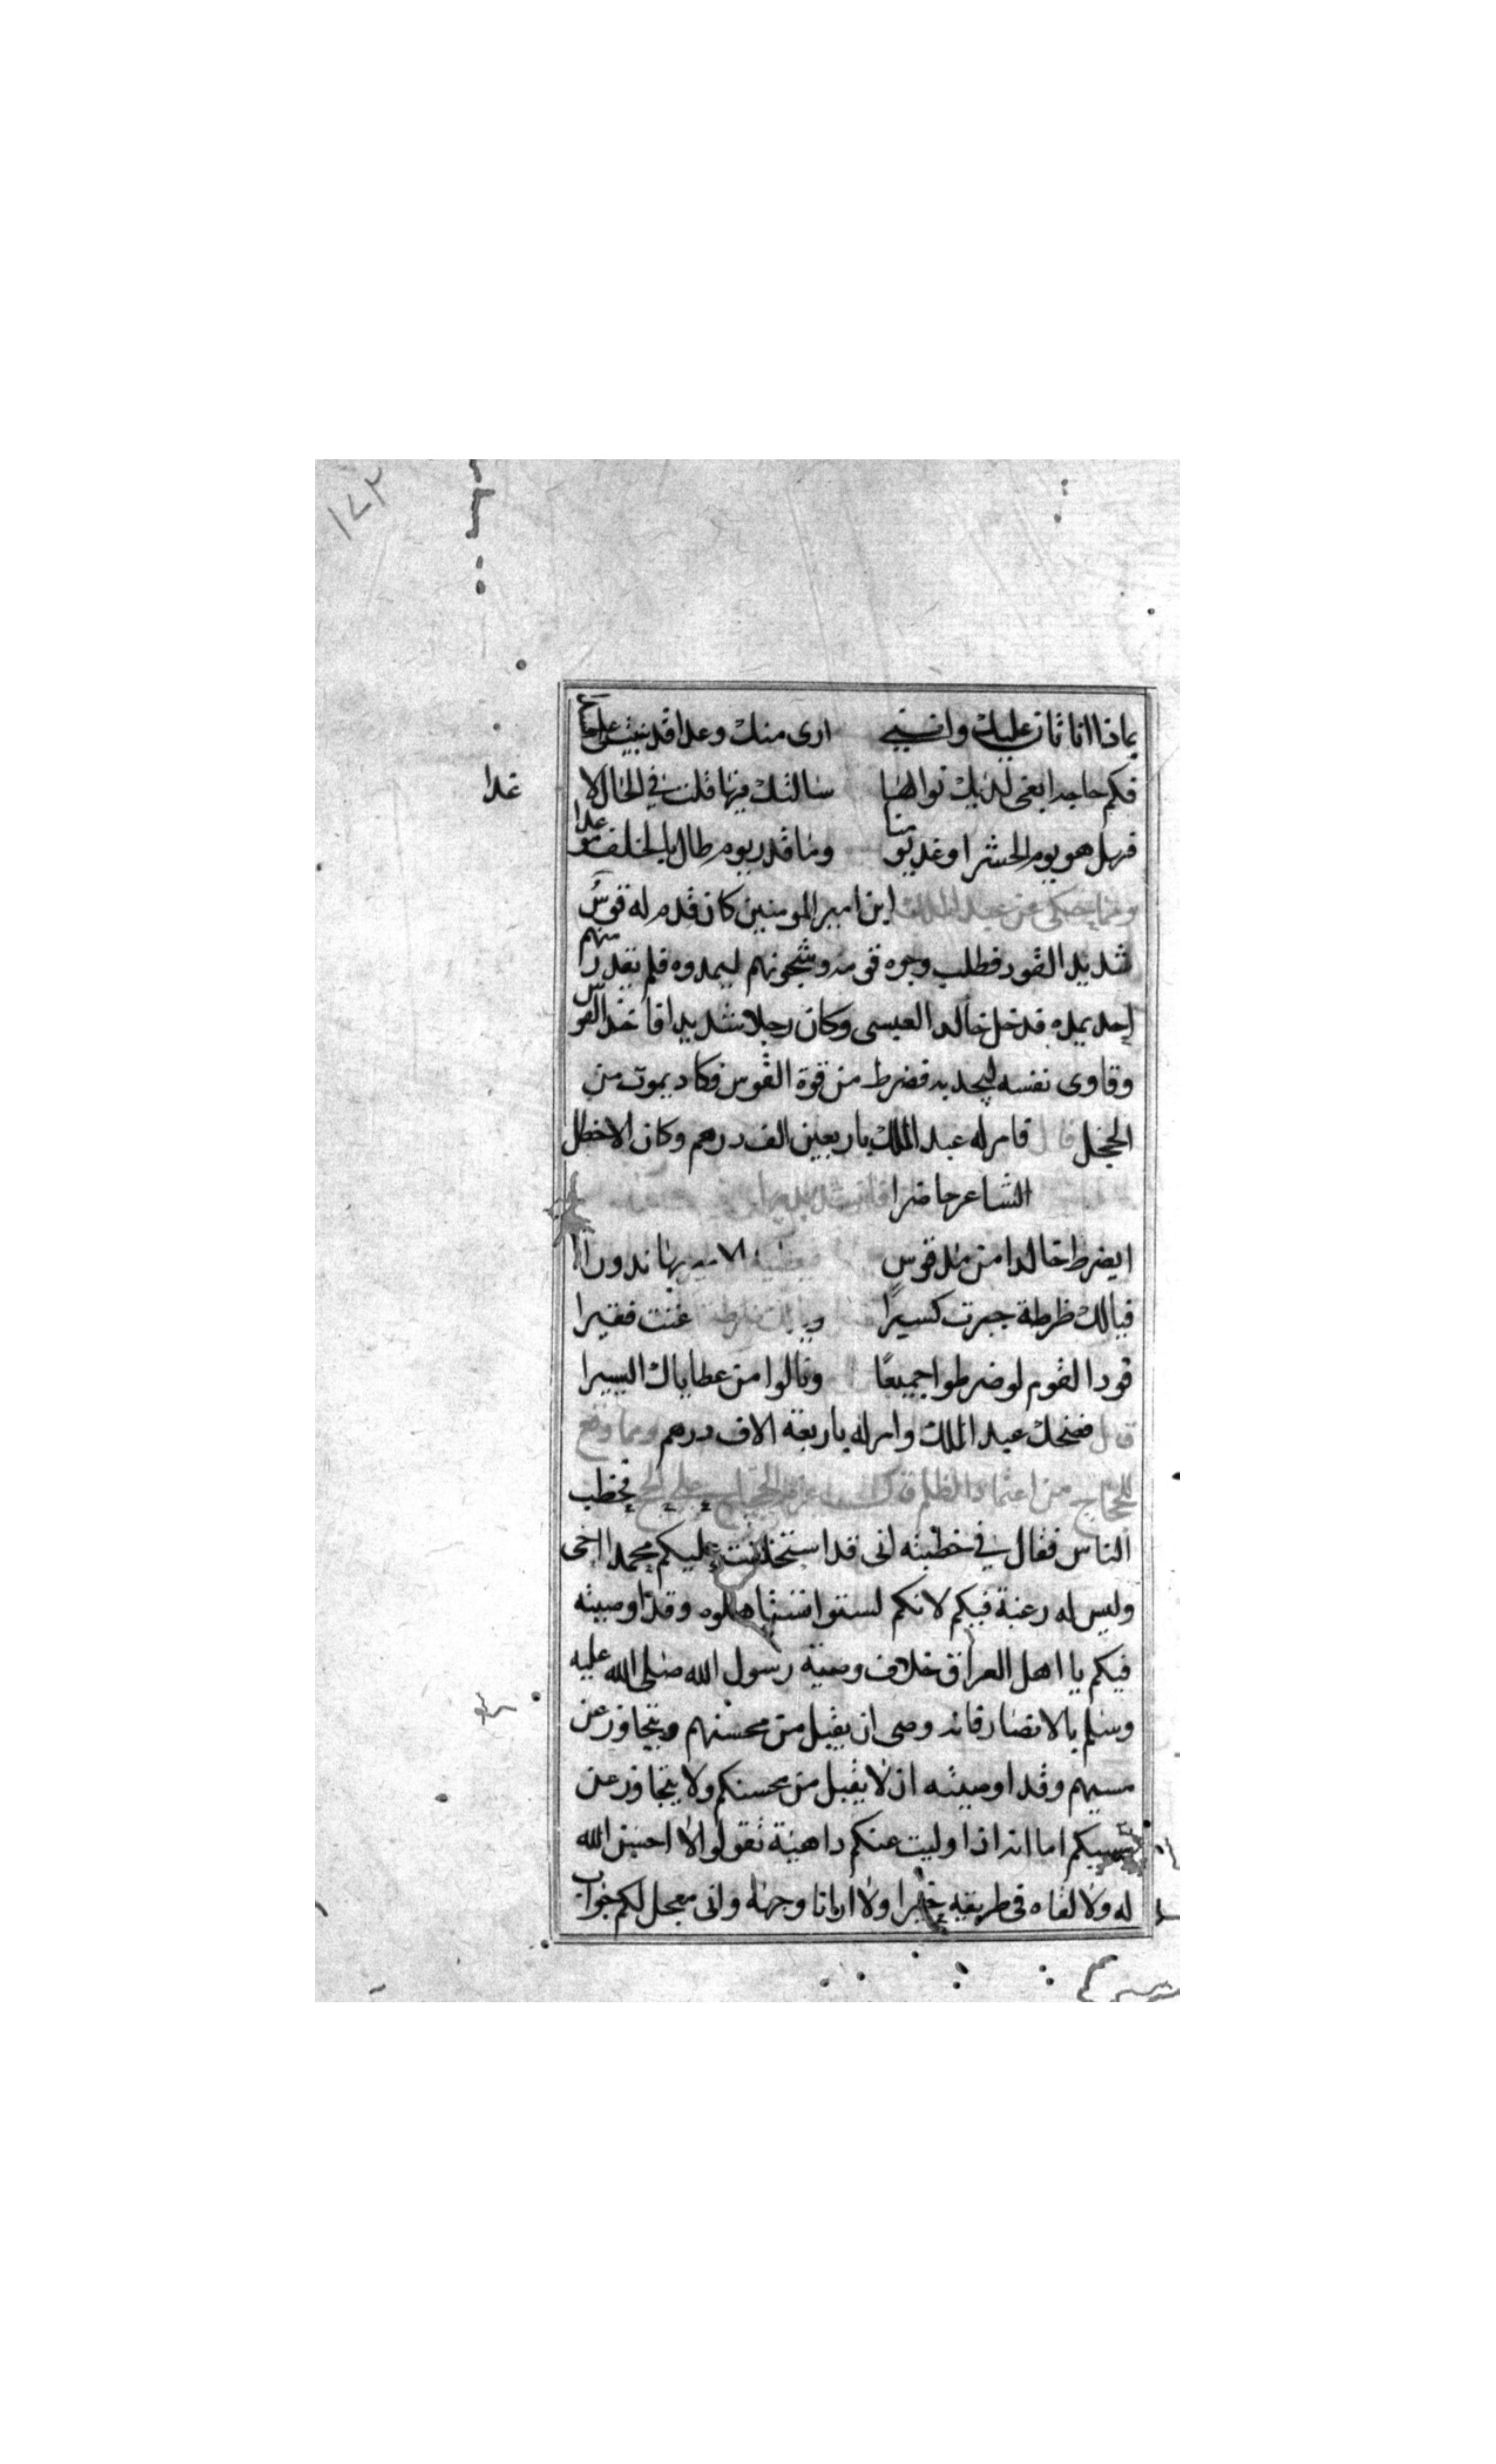 ١٧٢
بماذا انا ثان عليك وانني ارى منك وعدا قد
فكم حاجة ابغى لديك نوالها سالتك فيها قلت في الحال لا
غدا
فهل هو يوم الحشر او غد يومنا وما قدر يوم طال بالخلف موعدا
ومما يحكى عن عبد الملك ابن امير المومنين كان قدم له قوس
شديد القود فطلب وجوه قومه وشجونهم ليمدوه فلم يقدر منهم
احد يمده فدخل خالد العبسى وكان رجلا شديدا فاخذ القوس
وقاوى نفسه ليجديه فضرط من قوة القوس فكاد يموت من
الخجل قال فامر له عبد الملك باربعين الف درهم وكان الاخطل
الشاعر حاضرا فانشد
ايضرط خالدا من مد قوس الامير بها ندورا
فيالك ظرطة جبرت كسيرًا ويالك ضرطة غنت فقيرا
فودا القوم لو ضرطوا جميعًا ونالوا من عطاياك اليسيرا
قال فضحك عبد الملك وامر له باربعة الاف درهم ومما وقع
للحجاج من اعتماد الظلم قال عزم الحجاج على الحج فخطب
الناس فقال في خطبته انى قد استخلفت عليكم محمدا اخى
وليس له رغبة فيكم لانكم لستوا تستاهلوه وقد اوصيته
فيكم يا اهل العراق خلاف وصية رسول الله صلى الله عليه
وسلم بالانصار فانه وصى ان يقبل من محسنهم ويتجاوز عن
مسيهم وقد اوصيته ان لا يقبل من محسنكم ولا يتجاوز عن
مسيكم اما انه اذا وليت عنكم داهية تقولوا لا احسن الله
له ولا لقاه في طريقه خيرا ولا ارانا وجهه وانى معجل لكم جواب